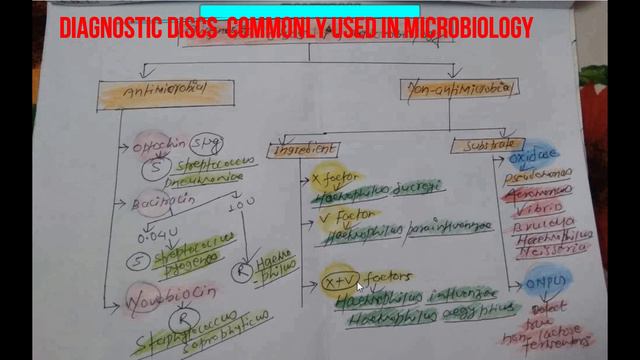 DIAGNOSTIC DISCS COMMONLY USED IN MICROBIOLOGY
Antimicrobial
Non-antimicrobial
Optochin 5µg
S Streptococcus
pneumoniae
Bacitracin
0.04U
10U
S Streptococcus
pyogenes
R Haemo
-philus
Novobiocin
R
Staphylococcus
saprophyticus
Ingredient
X factor
Haemophilus ducreyi
V factor
Haemophilus parainfluenzae
X+V factors
Haemophilus influenzae
Haemophilus aegyptius
Substrate
Oxidase
Pseudomonas
Aeromonas
Vibrio
Brucella
Haemophilus
Neisseria
ONPG
Detect
true
non-lactose
fermentors